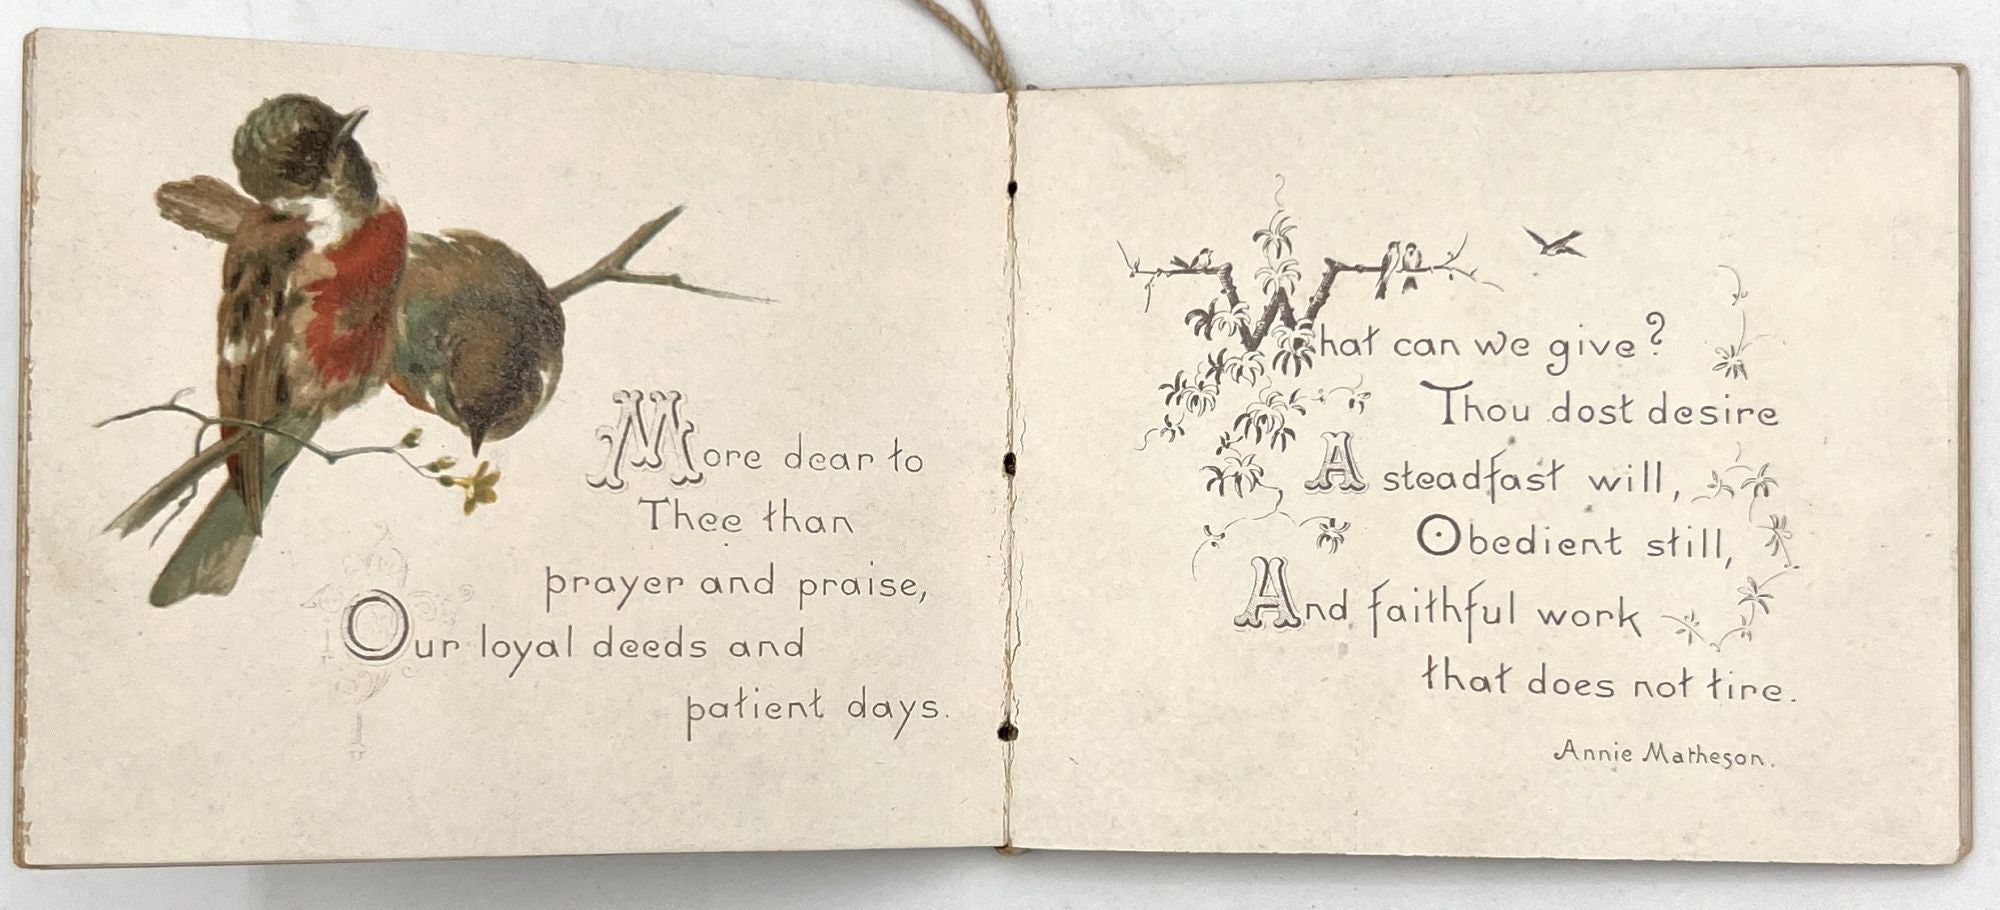 More dear to
Thee than
prayer and praise,
Our loyal deeds and
patient days.
What can we give?
Thou dost desire
A steadfast will,
Obedient still,
And faithful work
that does not tire.
Annie Matheson.